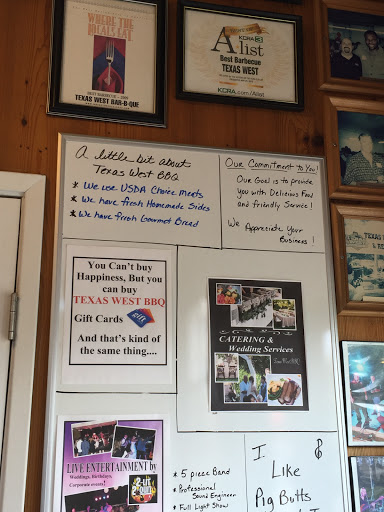 WHERE THE
LOCALS EAT
BEST BARBECUE
TEXAS WEST BAR-B-QUE
KCRA 3
A list
Best Barbecue
TEXAS WEST
KCRA.com/Alist
A little bit about
Texas West BBQ
* We use USDA Choice meats
* We have fresh Homemade Sides
* We have fresh Gourmet Bread
Our Commitment to You!
Our Goal is to provide
you with Delicious Food
and friendly Service!
We Appreciate Your
Business!
You Can't buy
Happiness, But you
can buy
TEXAS WEST BBQ
Gift Cards
And that's kind of
the same thing....
CATERING &
Wedding Services
LIVE ENTERTAINMENT by
Weddings, Birthdays,
Corporate events!
* 5 piece Band
* Professional
Sound Engineer
* Full Light Show
I
Like
Pig Butts